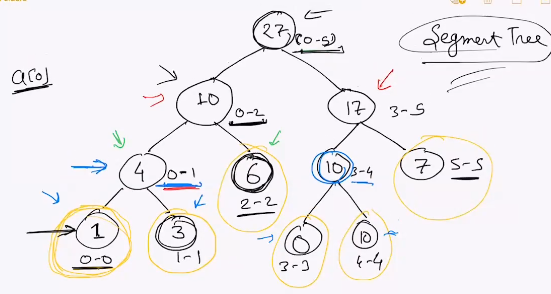 27
(0-5)
Segment Tree
a[0]
10
0-2
17
3-5
4
0-1
6
2-2
10
3-4
7
5-5
1
0-0
3
1-1
0
3-3
10
4-4